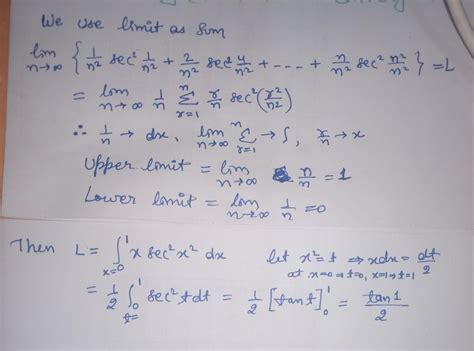 We use limit as Sum
lim n→∞ { 1/n² sec² 1/n² + 2/n² sec² 4/n² + --- + n/n² sec² n²/n² } = L
= lim n→∞ 1/n Σ r=1 n r/n sec² (r²/n²)
∴ 1/n → dx, lim n→∞ Σ r=1 n → ∫, r/n → x
Upper limit = lim n→∞ n/n = 1
Lower limit = lim n→∞ 1/n = 0
Then L = ∫ x=0 1 x sec² x² dx let x² = t ⇒ xdx = dt/2
at x=0 ⇒ t=0, x=1 ⇒ t=1
= 1/2 ∫ t=0 1 sec² t dt = 1/2 [tan t] 0 1 = tan 1/2